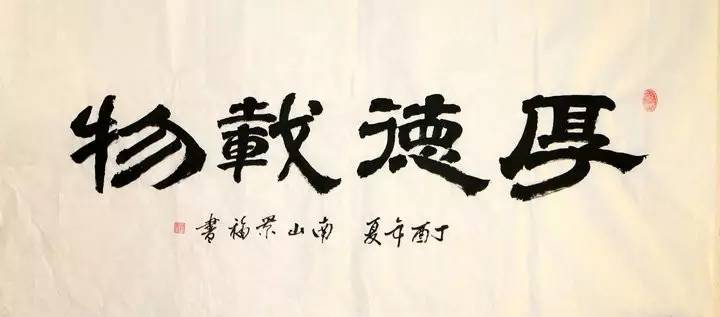 厚德載物
丁酉年夏 南山景福書